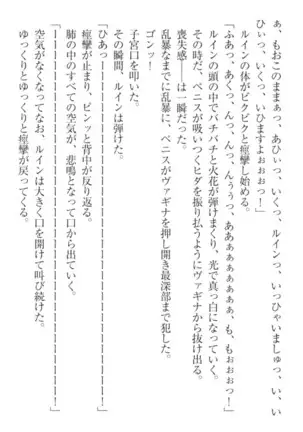 ぁ、もおこのままぁっ、あひぃっ、いくっ、ルインっ、いっひゃいましゅっ、い、い
ひぃっ、いくっ、いひますよぉぉぉっ！」
ルインの体がビクビクと痙攣し始める。
「ふあっ、あくっ、んっ、んっ、んぅぅっ、ああぁぁぁぁぁぁぁ、も、もぉぉぉっ！」
ルインの頭の中でバチバチと火花が弾けまくり、光で真っ白になっていく。
その時だ、ペニスが吸いつくヒダを振り払うようにヴァギナから抜け出る。
喪失感――は一瞬だった。
乱暴なまでに乱暴に、ペニスがヴァギナを押し開き最深部まで犯した。
ゴンッ！
子宮口を叩いた。
その瞬間、ルインは弾けた。
「ひあっーーーーーーーーーーーーーーーーーーーーーーーー！」
痙攣が止まり、ビンッと背中が反り返る。
肺の中のすべての空気が、悲鳴となって口から出ていく。
「ーーーーーーーーーーーーーーーーーーーーーーーーーーー！」
空気がなくなってなお、ルインは大きく口を開けて叫び続けた。
ゆっくりとゆっくりと痙攣が戻ってくる。